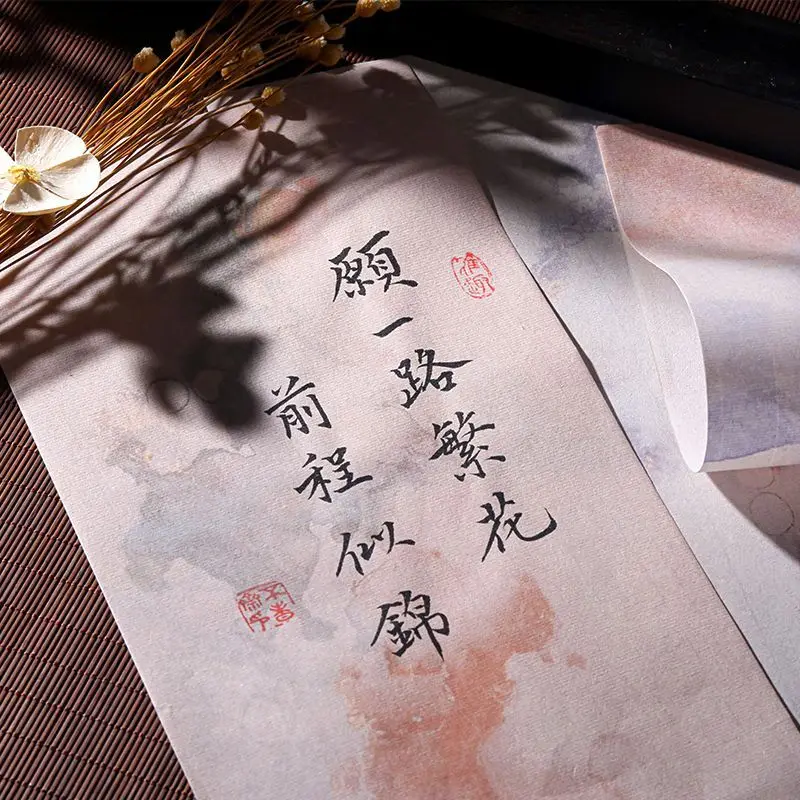 願一路繁花
前程似錦